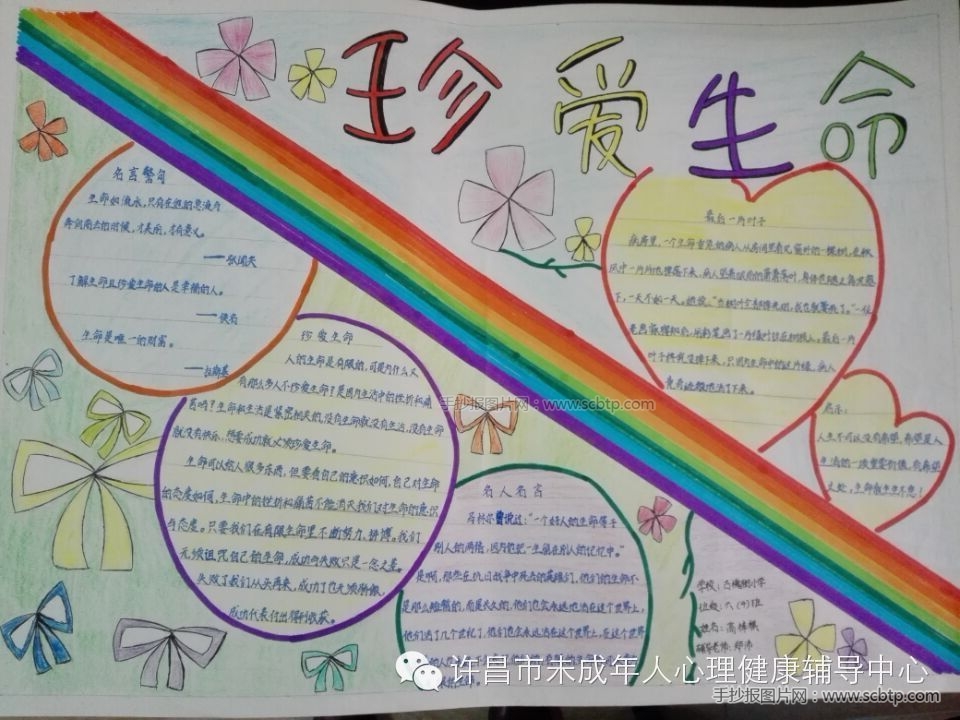 珍爱生命
名言警句
生命如流水,只有在他的急流与
奔向前去的时候,才美丽,才有意义。
——张闻天
了解生命且珍爱生命的人是幸福的人。
生命是唯一的财富。
珍爱生命
人的生命是有限的,可是为什么又
有那么多人不珍爱生命?是因为生活中的挫折和痛
苦吗?生命和生活是紧密相关的,没有生命就没有生活,没有生命
就没有快乐,想要成功就必须珍爱生命。
生命可以给人很多东西,但要看自己的意识如何,自己对生命
的态度如何,生命中的挫折和痛苦不能消灭我们对生命的意识
与态度。只要我们在有限生命里不断努力、拼搏。我们
无须诅咒自己的生命,成功与失败只是一念之差。
失败了我们从头再来,成功了也无须骄傲,
成功代表付出得到收获。
最后一片叶子
病房里,一个生命垂危的病人从房间里看见窗外的一棵树,在秋
风中一片片地掉落下来。病人望着眼前的萧萧落叶,身体也随之每况愈
下,一天不如一天。她说:"当树叶全部掉光时,我也就要死了。"一位
老画家得知后,用彩笔画了一片叶脉
最后一片
叶子终究没掉下来。只因为生命中的这片绿,病人
竟奇迹般地活了下来。
启示:
人生不可以没有希望,希望是人
生活的一项重要价值,有希望
之处,生命就生生不息!
名人名言
"一个好人的生命等于
别人的两倍,因为他把一生留在别人的记忆中。"
是啊,那些在抗日战争中死去的英雄们,他们的生命不
是那么短暂的,而是长久的,他们也会永远地活在这个世界上,
他们活了几个世纪了,他们也会永远活在这个世界上,在这个世界
学校:古槐街小学
班级:六(4)班
姓名:高
辅导老师:郑
手抄报图片网:www.scbtp.com
许昌市未成年人心理健康辅导中心
手抄报图片网:www.scbtp.com